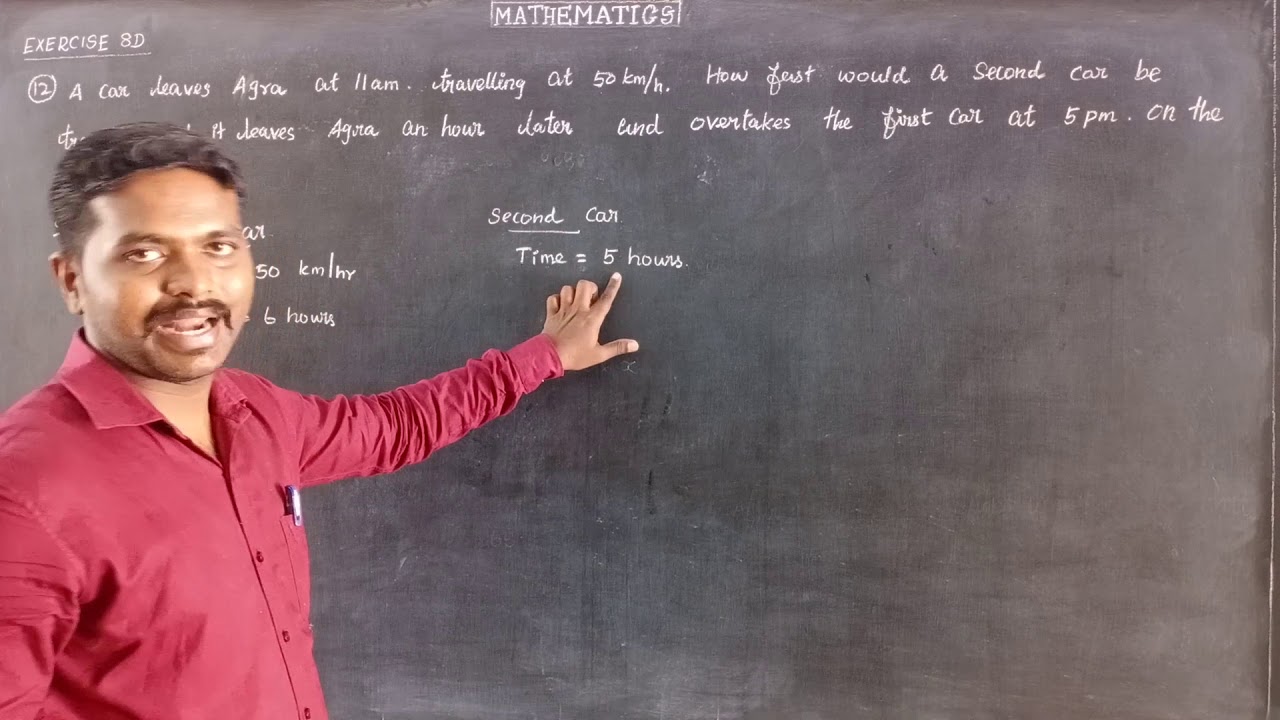 MATHEMATICS
EXERCISE 8D
(12) A car leaves Agra at 11 am. travelling at 50 km/h. How fast would a Second car be
it leaves Agra an hour later and overtakes the first car at 5 pm. on the
Second Car
Time = 5 hours.
50 km/hr
= 6 hours
x